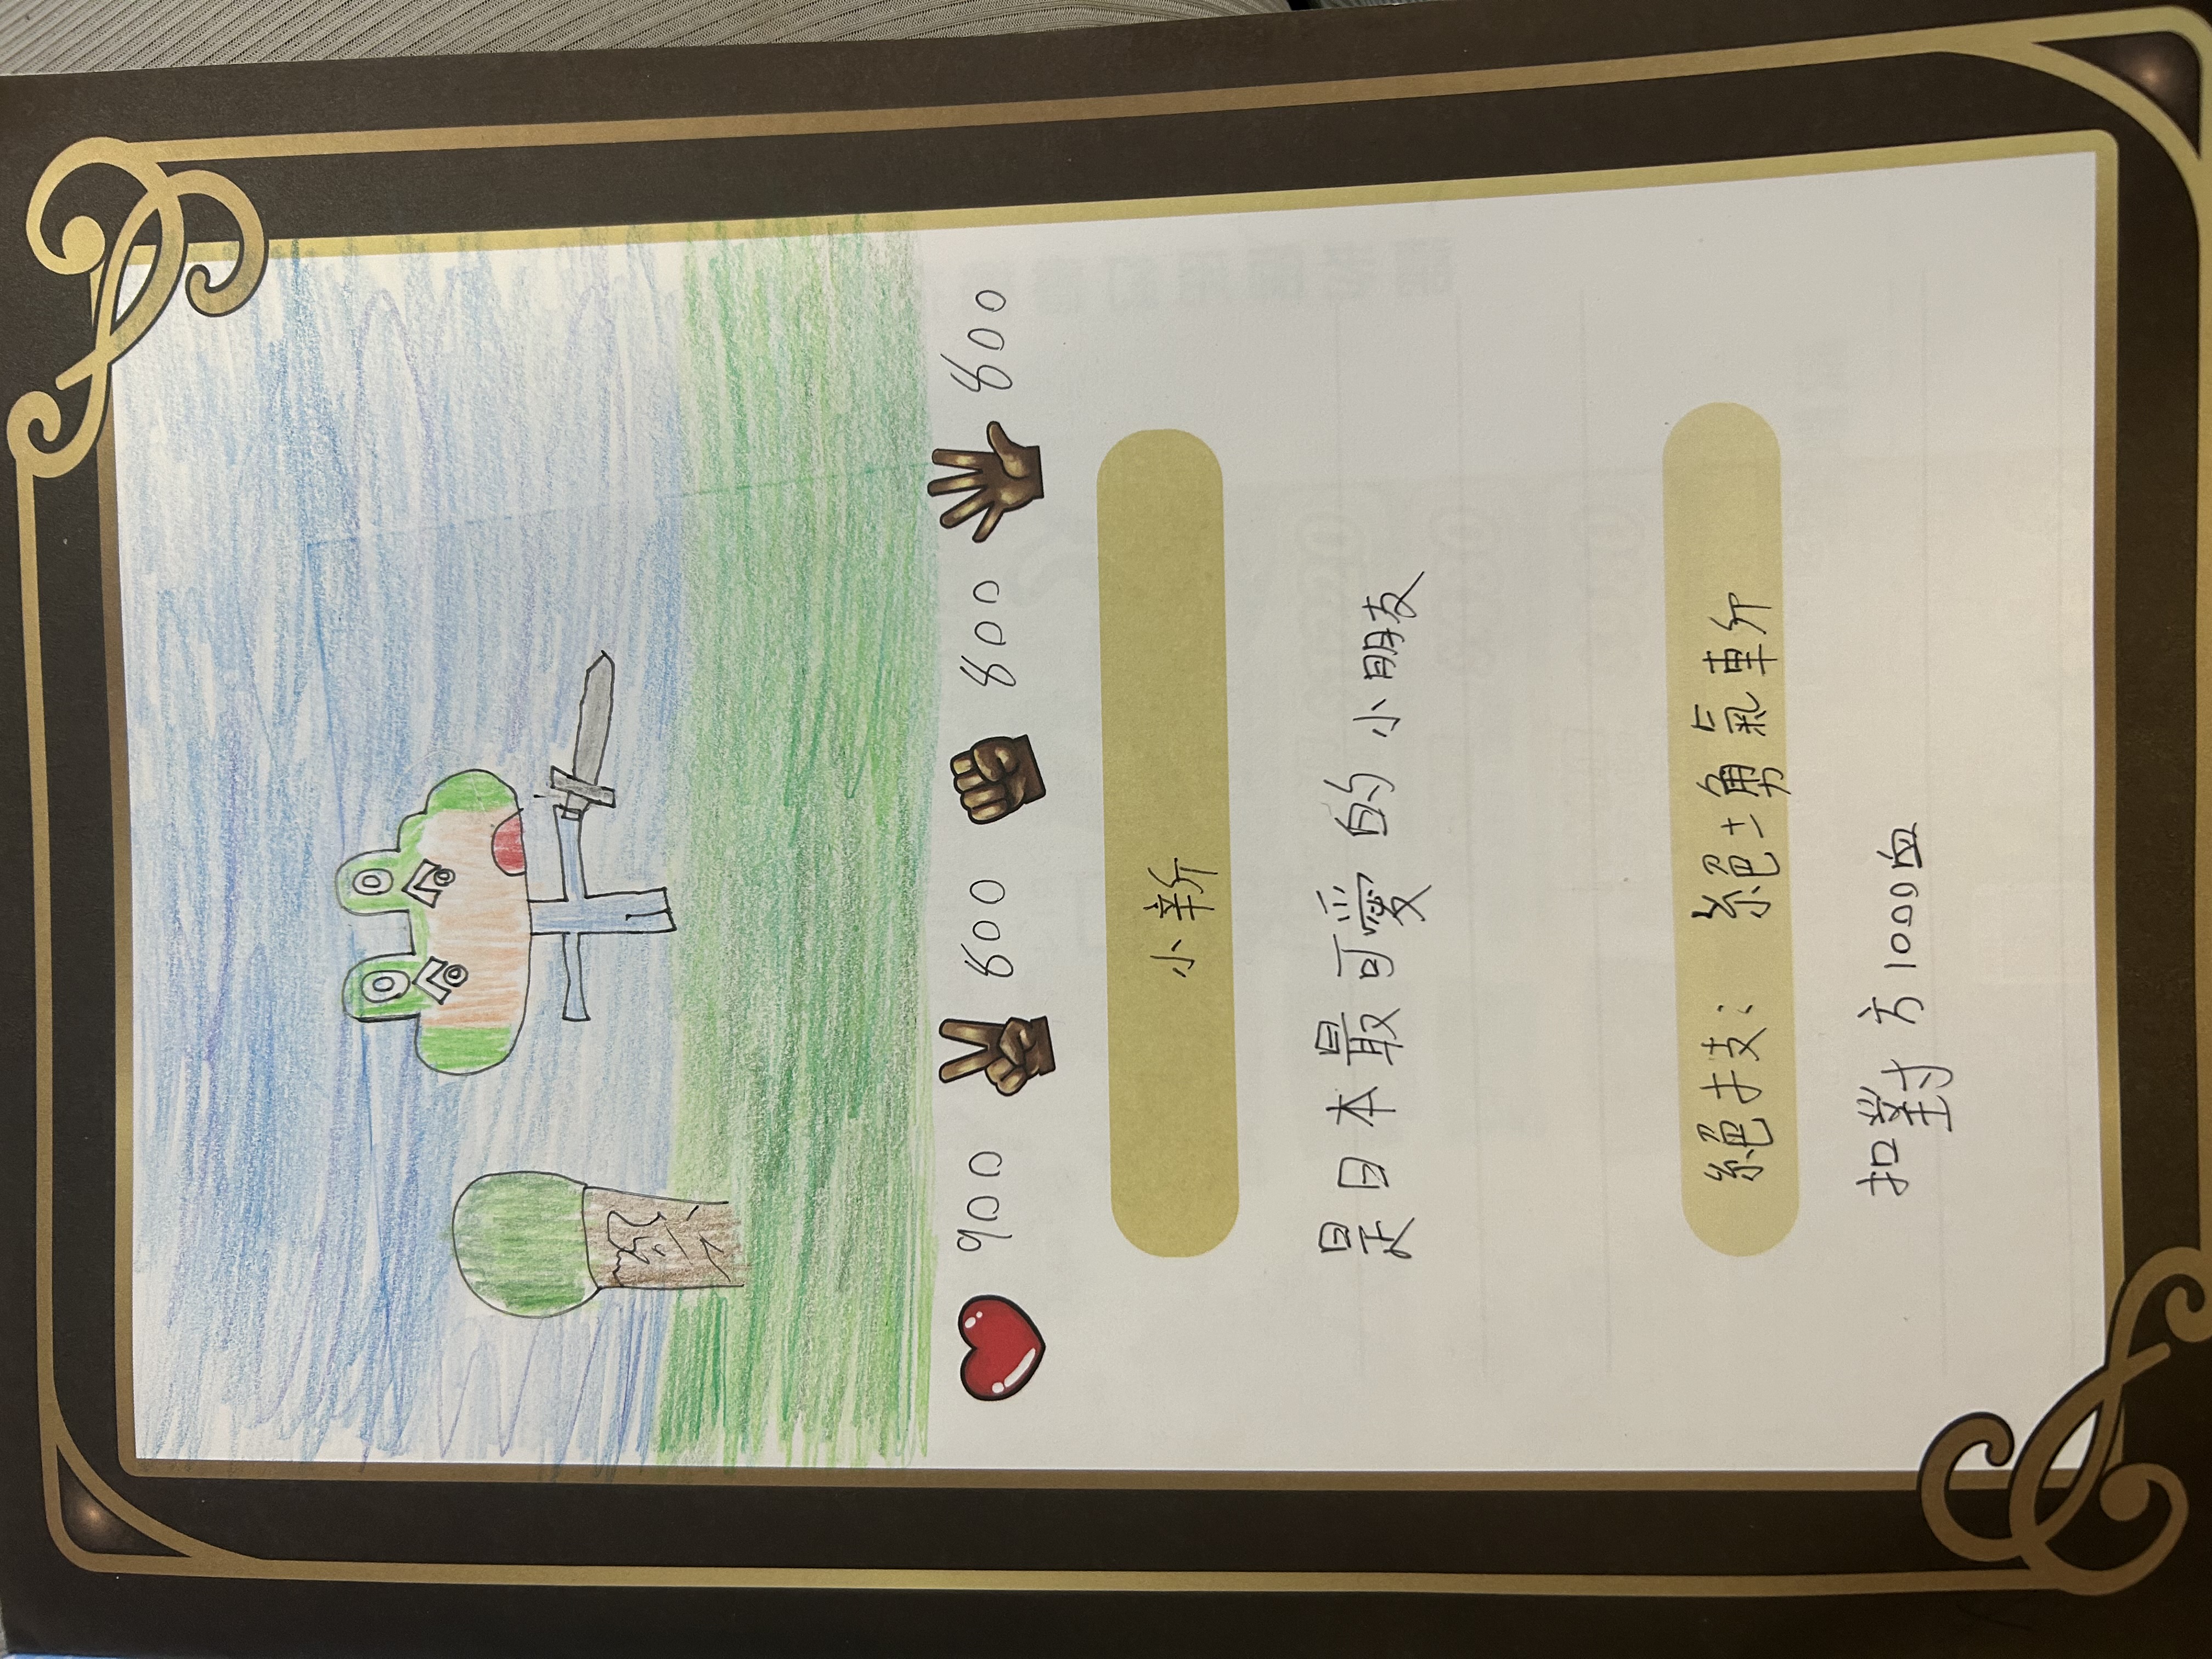 900 800 800 800
小新
是日本最可愛的小朋友
絕技：絕土角氣車斤
扣對方1000血